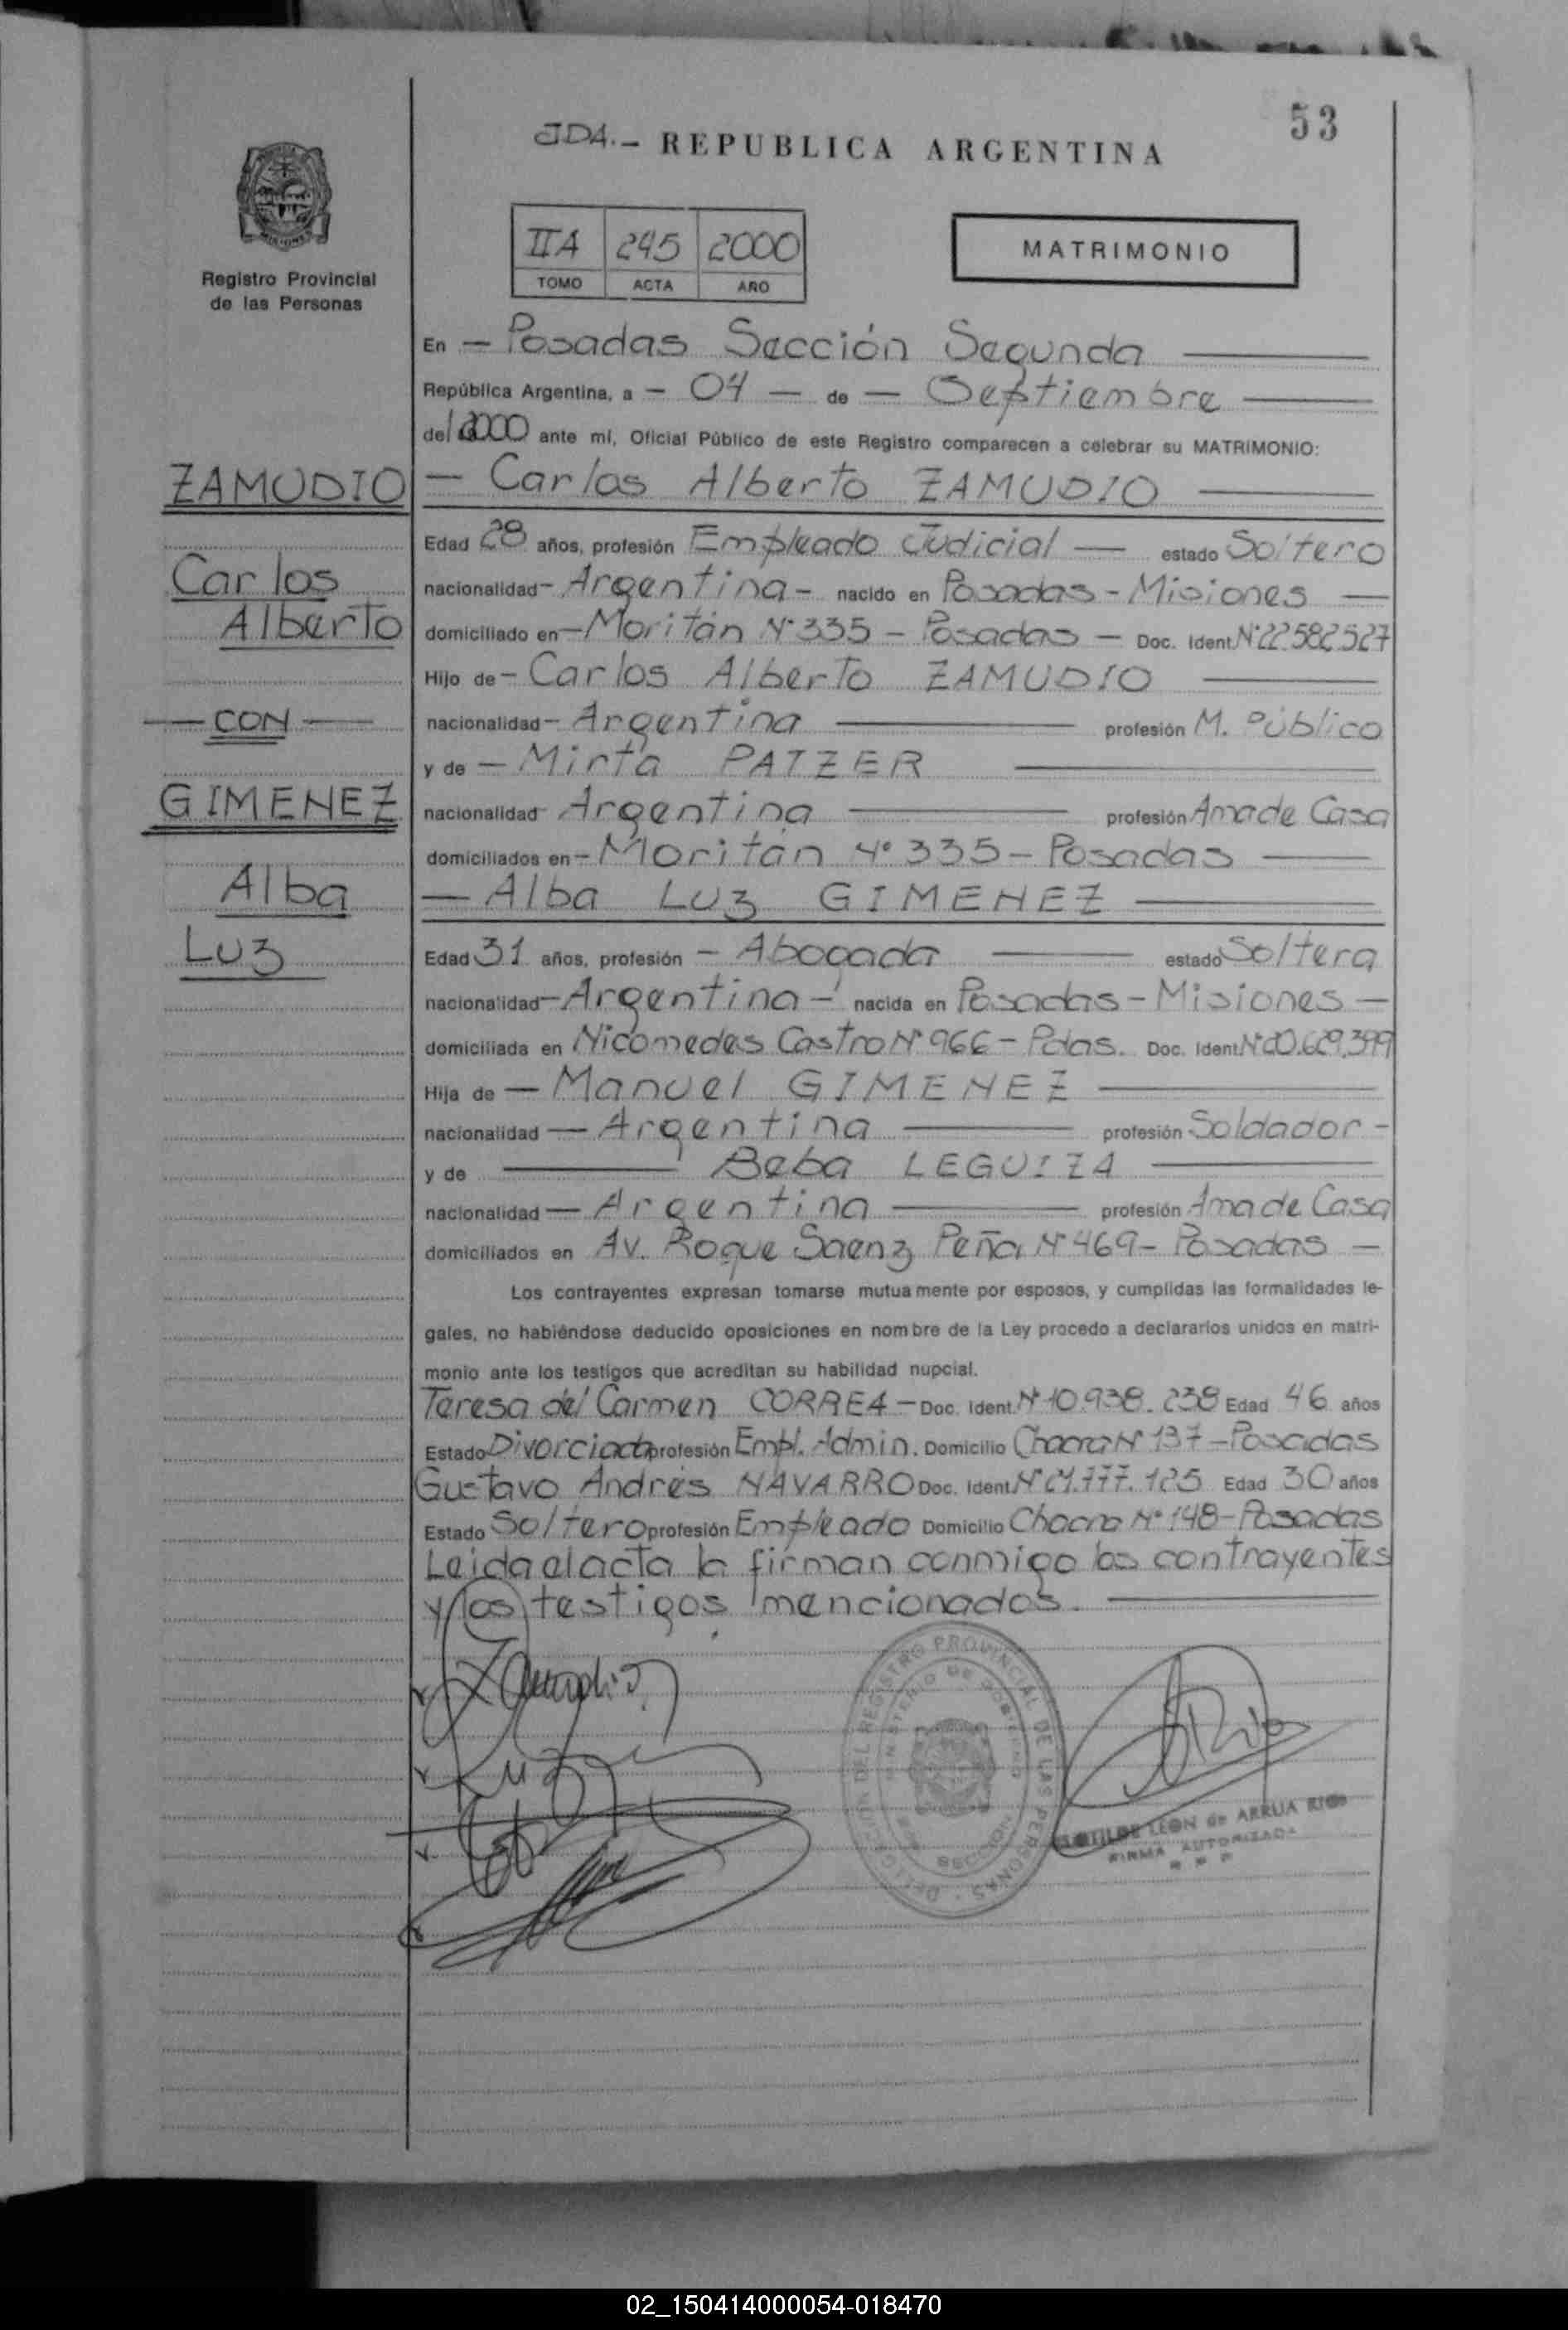 53
JDA.- REPUBLICA ARGENTINA
Registro Provincial
de las Personas
IIA 245 2000
TOMO ACTA AÑO
MATRIMONIO
En — Posadas Sección Segunda —
República Argentina, a — 04 — de — Septiembre —
del 2000 ante mí, Oficial Público de este Registro comparecen a celebrar su MATRIMONIO:
ZAMUDIO
Carlos
Alberto
— CON —
GIMENEZ
Alba
Luz
— Carlos Alberto ZAMUDIO —
Edad 28 años, profesión Empleado Judicial — estado Soltero
nacionalidad - Argentina - nacido en Posadas - Misiones —
domiciliado en - Moritán N° 335 - Posadas - Doc. Ident. N° 22.582.527
Hijo de - Carlos Alberto ZAMUDIO —
nacionalidad - Argentina — profesión M. Público
y de - Mirta PATZER —
nacionalidad Argentina — profesión Ama de Casa
domiciliados en - Moritán N° 335 - Posadas —
— Alba Luz GIMENEZ —
Edad 31 años, profesión - Abogada — estado Soltera
nacionalidad - Argentina - nacida en Posadas - Misiones —
domiciliada en Nicomedes Castro N° 966 - Pdas. Doc. Ident. N° 20.629.399
Hija de — Manuel GIMENEZ —
nacionalidad — Argentina — profesión Soldador -
y de — Beba LEGUIZA —
nacionalidad — Argentina — profesión Ama de Casa
domiciliados en Av. Roque Saenz Peña N° 469 - Posadas —
Los contrayentes expresan tomarse mutuamente por esposos, y cumplidas las formalidades le-
gales, no habiéndose deducido oposiciones en nombre de la Ley procedo a declararlos unidos en matri-
monio ante los testigos que acreditan su habilidad nupcial.
Teresa del Carmen CORREA - Doc. Ident. N° 10.938.238 Edad 46 años
Estado Divorciada profesión Empl. Admin. Domicilio Chacra N° 137 - Posadas
Gustavo Andrés NAVARRO Doc. Ident. N° 21.777.125 Edad 30 años
Estado Soltero profesión Empleado Domicilio Chacra N° 148 - Posadas
Leida el acta la firman conmigo los contrayentes
y los testigos mencionados. —
Zamudio
Luz
DELEGACION DEL REGISTRO PROVINCIAL DE LAS PERSONAS
MINISTERIO DE GOBIERNO
CLOTILDE LEON de ARRUA RIOS
FIRMA AUTORIZADA
02_150414000054-018470